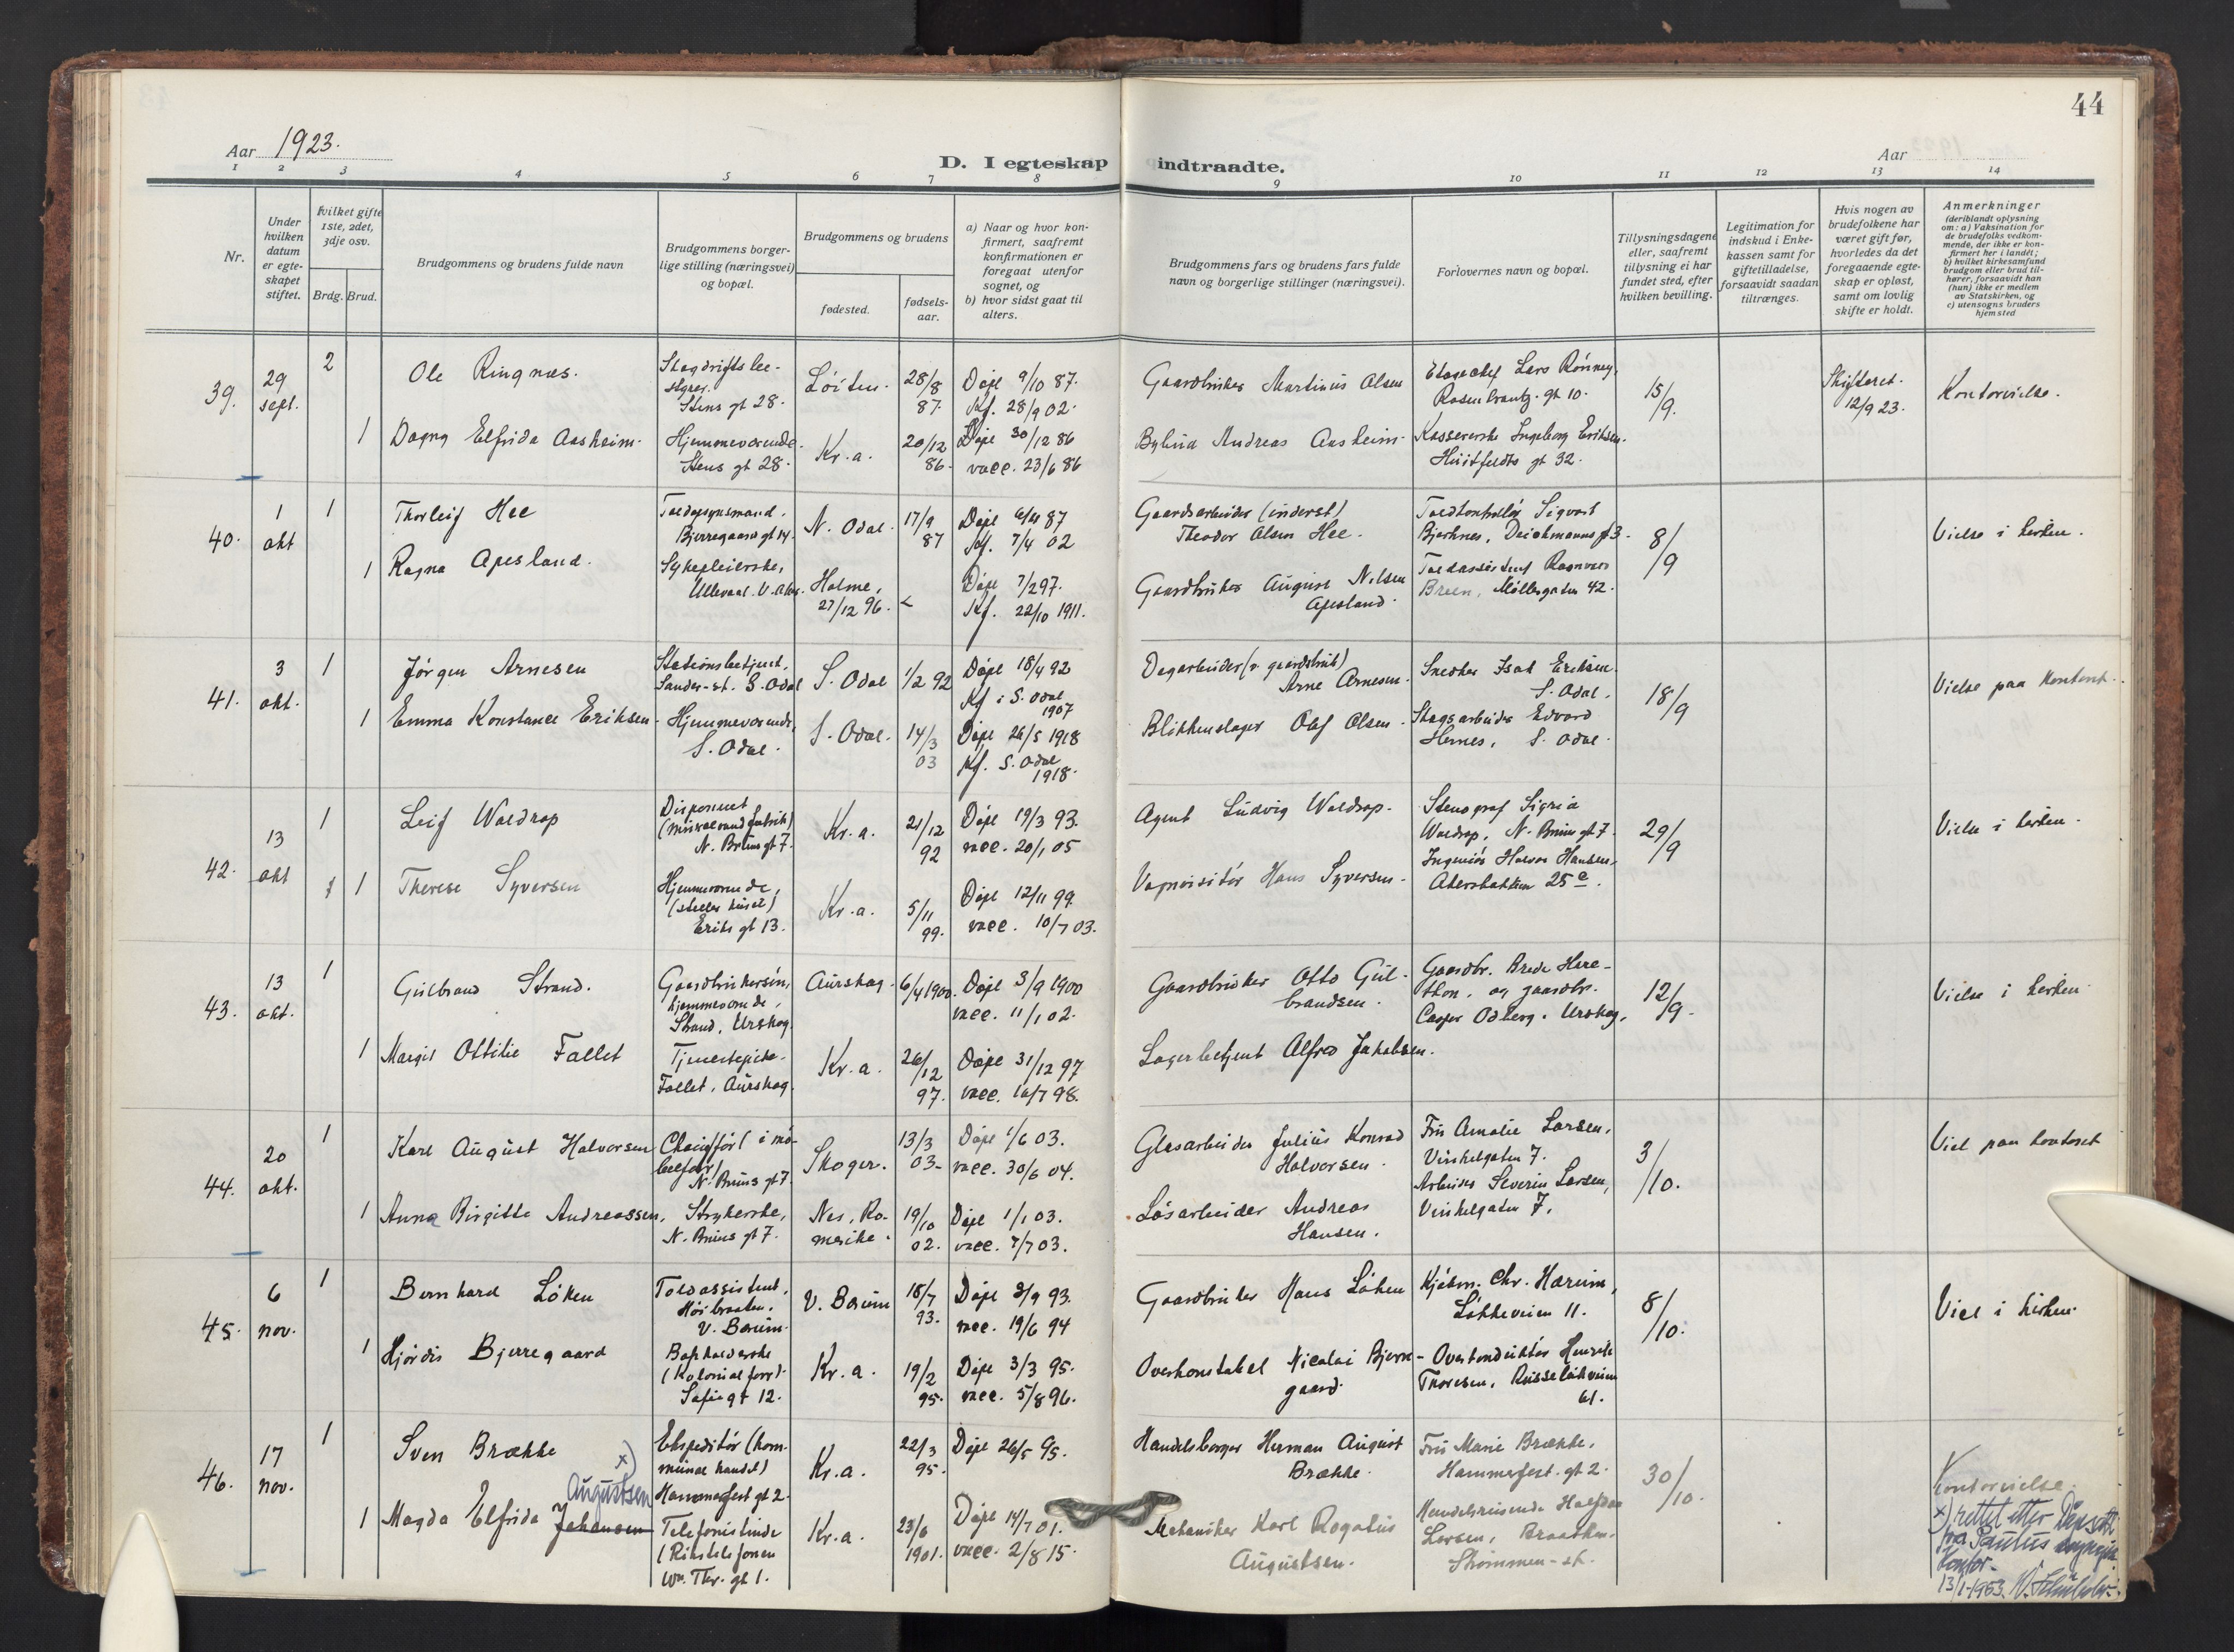 44
Aar 1923.
D. I egteskap indtraadte.
Aar
1 2 3 4 5 6 7 8 9 10 11 12 13 14
Nr.
Under hvilken datum er egteskapet stiftet.
hvilket gifte 1ste, 2det, 3dje osv.
Brdg. Brud.
Brudgommens og brudens fulde navn
Brudgommens borgerlige stilling (næringsvei) og bopæl.
Brudgommens og brudens
fødested.
fødselsaar.
a) Naar og hvor konfirmert, saafremt konfirmationen er foregaat utenfor sognet, og
b) hvor sidst gaat til alters.
Brudgommens fars og brudens fars fulde navn og borgerlige stillinger (næringsvei).
Forlovernes navn og bopæl.
Tillysningsdagene eller, saafremt tillysning ei har fundet sted, efter hvilken bevilling.
Legitimation for indskud i Enkekassen samt for giftetilladelse, forsaavidt saadan tiltrænges.
Hvis nogen av brudefolkene har været gift før, hvorledes da det foregaaende egteskap er opløst, samt om lovlig skifte er holdt.
Anmerkninger
(deriblandt oplysning om: a) Vaksination for de brudefolks vedkommende, der ikke er konfirmert her i landet; b) hvilket kirkesamfund brudgom eller brud tilhører, forsaavidt han (hun) ikke er medlem av Statskirken, og c) utensogns bruders hjemsted
39. 29 sept. 2 Ole Ringnæs. Stens gt 28. Löiten. 28/8 87. Døpt 9/10 87. Kf. 28/9 02. Gaardbruker Martinus Olsen Rosenkrantz. gt 10. 15/9. Skifteret. 12/9 23. Kontorvielse.
1 Dagny Elfrida Aasheim. Hjemmeværende. Stens gt 28. Kr.a. 20/12 86. Døpt 30/12 86 vacc. 23/6 86 Bybud Andreas Aasheim. Kassererske Ingeborg Eriksen. Huitfeldts gt 32.
40. 1 okt 1 Thorleif Hee Bjerregaard gt 14. N. Odal. 17/9 87 Kf. 7/4 02 Gaardsarbeider (inderst) Theodor Olsen Hee. Toldkontrollør Sigvart Bjerknes, Deichmanns gt 3. 8/9 Vielse i kirken.
1 Ragna Apesland. Sykepleierske, Holme, 27/12 96. Døpt 7/2 97. Kf. 22/10 1911. Gaardbruker August Nilsen Apesland. Toldassistent Ragnvald Breen, Møllergaten 42.
41. 3 okt. 1 Jörgen Arnesen Stationsbetjent, Sander-st. S. Odal S. Odal 1/2 92 Døpt 18/4 92 Kf i S. Odal 1907 Arne Arnesen. Snedker Isak Eriksen. S. Odal. 18/9 Vielse paa kontoret.
1 Emma Konstance Eriksen. Hjemmeværende, S. Odal. S. Odal. 14/3 03 Døpt 26/5 1918 Kf. S. Odal 1918. Blikkenslager Olaf Olsen. Skogsarbeider Edvard Hernes, S. Odal.
42. 13 okt 1 Leif Waldrop Disponent N. Bruns gt 7. Kr.a. 21/12 92 Døpt 19/3 93. vacc. 20/1 05 Agent Ludvig Waldrop. Stenograf Sigrid Waldrop, N. Bruns gt 7. 29/9 Vielse i kirken.
1 Therese Syversen Hjemmeværende, (steller huset) Eriks gt 13. Kr.a. 5/11 99. Døpt 12/11 99. vacc. 10/7 03. Vognvisitør Hans Syversen. Ingeniør Halvor Hansen, Akersbakken 25
43. 13 okt. 1 Gulbrand Strand. Gaardbrukersøn, hjemmeværende, Strand, Urskog. Aurskog. 6/4 1900. Døpt 3/9 1900 vacc. 11/1 02. Gaardbruker Otto Gulbrandsen. Gaardbr. og gaardbr. Casper Odberg. Urskog. 12/9. Vielse i kirken.
1 Margit Ottilie Fallet Tjenestepike. Fallet, Aurskog. Kr.a. 26/12 97. Døpt 31/12 97 vacc. 16/7 98. Lagerbetjent Alfred Jakobsen.
44. 20 okt. 1 Karl August Halvorsen N. Bruns gt 7. Skoger. 13/3 03. Døpt 1/6 03. vacc. 30/6 04. Glasarbeider Julius Konrad Halvorsen. Fru Amalie Larsen, Vinkelgaten 7. 3/10. Viet paa kontoret
1 Anna Birgitte Andreassen, Strykerske, N. Bruns gt 7. Nes, Romerike. 19/10 02. Døpt 1/1 03. vacc. 7/7 03. Løsarbeider Andreas Hansen. Arbeider Severin Larsen, Vinkelgaten 7.
45. 6 nov. 1 Bernhard Löken Toldassistent, Høibraaten. V. Bærum. V. Bærum 18/7 93. Døpt 3/9 93. vacc. 19/6 94 Gaardbruker Hans Löken Kjøbm. Chr. Hærum, Løkkeveien 11. 8/10. Viet i kirken.
1 Hjördis Bjerregaard (Kolonialforr.) Sofie gt 12. Kr.a. 19/2 95. Døpt 3/3 95. vacc. 5/8 96. Overkonstabel Nicolai Bjerregaard. Overkonduktør Henrik Thoresen, Ruseløkveien 61.
46. 17 nov. 1 Sven Brække Ekspeditør (kommunal handel) Hammerfest gt 2. Kr.a. 22/3 95. Døpt 26/5 95. Handelsborger Herman August Brække. Fru Marie Brække, Hammerfest. gt 2. 30/10. Kontorvielse.
1 Magda Elfrida Johansen x) Augustsen Telefonistinde (Rikstelefonen Wm. Thr. gt 1. Kr.a. 23/6 1901. Døpt 14/7 01. vacc. 2/8 15. Mekaniker Karl Rogatus Augustsen. Handelsreisende Halfdan Larsen, Strømmen-st.
x) rettet etter Dåpsatt. fra Paulus sogneprestkontor. 13/1-1953.